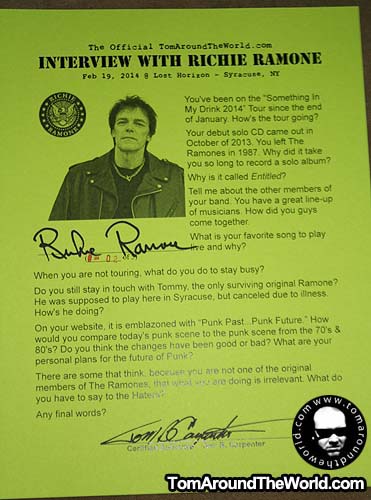 The Official TomAroundTheWorld.com
INTERVIEW WITH RICHIE RAMONE
Feb 19, 2014 @ Lost Horizon - Syracuse, NY
RICHIE
RAMONE
You've been on the "Something In
My Drink 2014" Tour since the end
of January. How's the tour going?
Your debut solo CD came out in
October of 2013. You left The
Ramones in 1987. Why did it take
you so long to record a solo album?
Why is it called Entitled?
Tell me about the other members of
your band. You have a great line-up
of musicians. How did you guys
come together.
What is your favorite song to play
live and why?
Richie Ramone
When you are not touring, what do you do to stay busy?
Do you still stay in touch with Tommy, the only surviving original Ramone?
He was supposed to play here in Syracuse, but canceled due to illness.
How's he doing?
On your website, it is emblazoned with "Punk Past...Punk Future." How
would you compare today's punk scene to the punk scene from the 70's &
80's? Do you think the changes have been good or bad? What are your
personal plans for the future of Punk?
There are some that think, because you are not one of the original
members of The Ramones, that what you are doing is irrelevant. What do
you have to say to the Haters?
Any final words?
Tom B Carpenter
Carpenter
www.tomaroundtheworld.com
TomAroundTheWorld.com